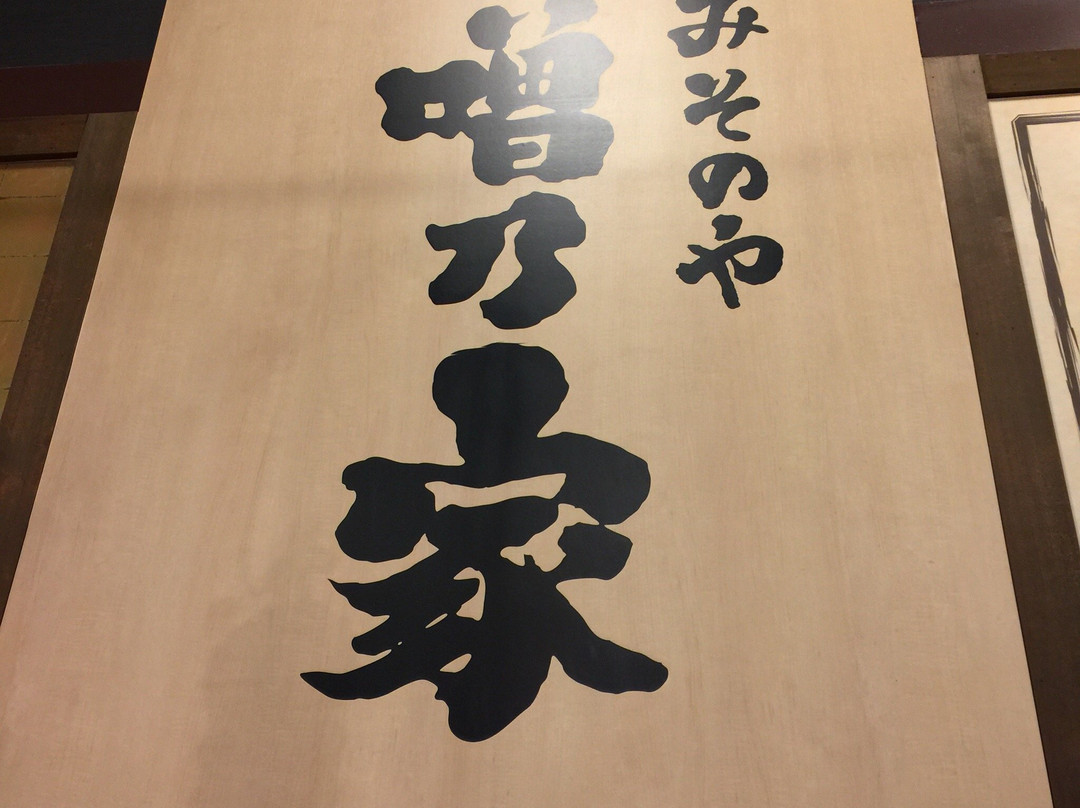 みそのや
噌乃家